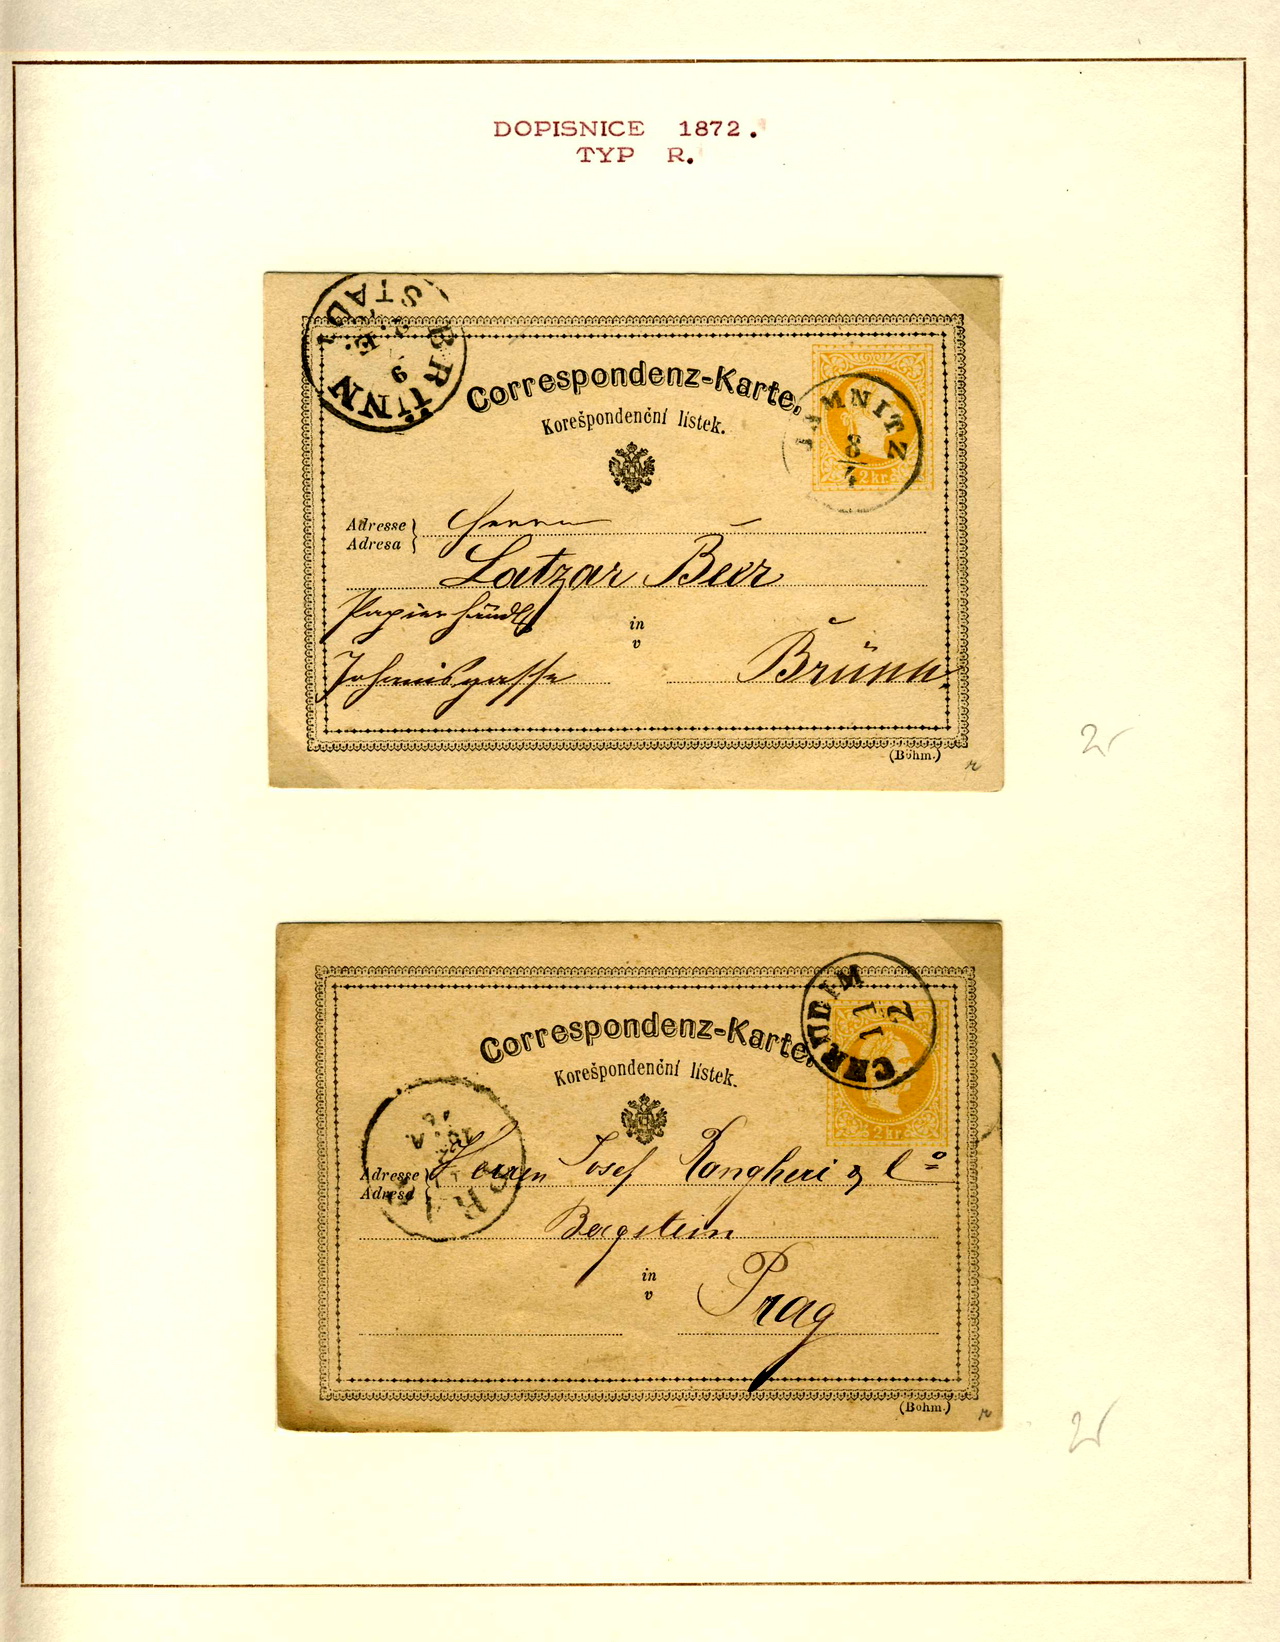 DOPISNICE 1872.
TYP R.
BRÜNN STADT
9
Correspondenz-Karte.
Korešpondenční lístek.
JAMNITZ
8
2 kr.
Adresse
Adresa
Herrn
Latzar Beer
Papierhändl
in
v
Johanisgasse
Brünn
(Böhm.)
r
2r
Correspondenz-Karte.
Korešpondenční lístek.
CHRUDIM
11
2
2 kr.
PRAG
Adresse
Adresa
Herrn Josef Rangheri & Co
Bergstein
in
v
Prag
(Böhm.)
r
2r